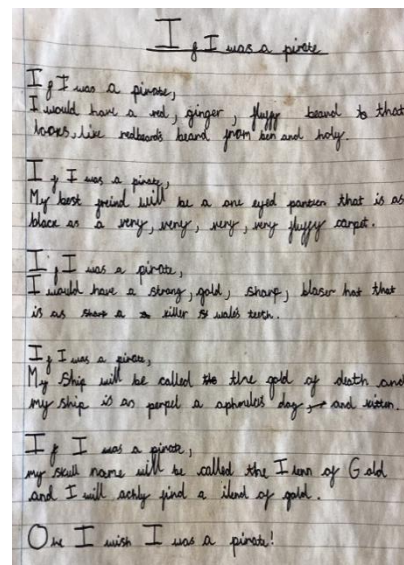 If I was a pirate
If I was a pirate,
I would have a red, ginger, fluffy beard to that
looks, like redbeards beard from ben and holy.
If I was a pirate,
My best freind will be a one eyed that is as
black as a very, very, very, very fluffy carpet.
If I was a pirate,
I would have a strong, gold, sharp, blaser hat that
is as sharp a killer wales teeth.
If I was a pirate,
My Ship will be called the gold of death and
my ship is as a dog, and kitten.
If I was a pirate,
my skull name will be called the of Gold
and I will find a of gold.
I wish I was a pirate!